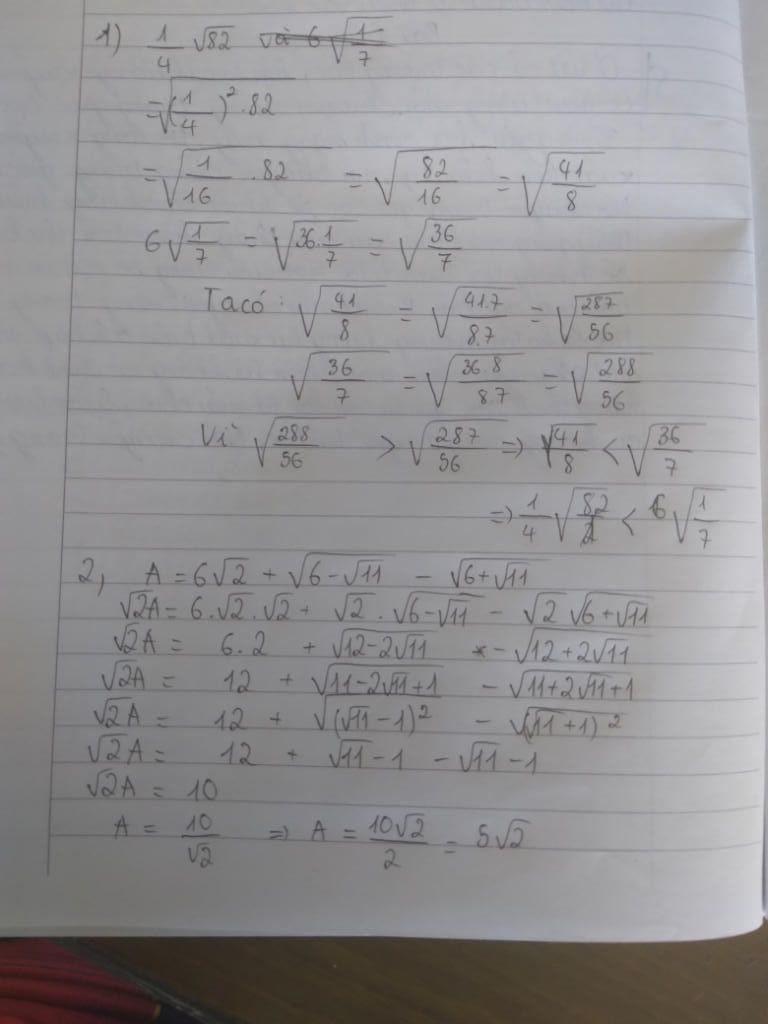 1) 1/4 √82 và 6√(1/7)
= √((1/4)² . 82)
= √(1/16 . 82) = √(82/16) = √(41/8)
6√(1/7) = √(36.1/7) = √(36/7)
Ta có: √(41/8) = √(41.7/8.7) = √(287/56)
√(36/7) = √(36.8/8.7) = √(288/56)
Vì √(288/56) > √(287/56) => √(41/8) < √(36/7)
=> 1/4 √82 < 6√(1/7)
2, A = 6√2 + √(6-√11) - √(6+√11)
√2A = 6.√2.√2 + √2.√(6-√11) - √2 √(6+√11)
√2A = 6.2 + √(12-2√11) - √(12+2√11)
√2A = 12 + √(11-2√11+1) - √(11+2√11+1)
√2A = 12 + √((√11-1)²) - √((√11+1)²)
√2A = 12 + √11-1 - √11-1
√2A = 10
A = 10/√2 => A = 10√2/2 = 5√2